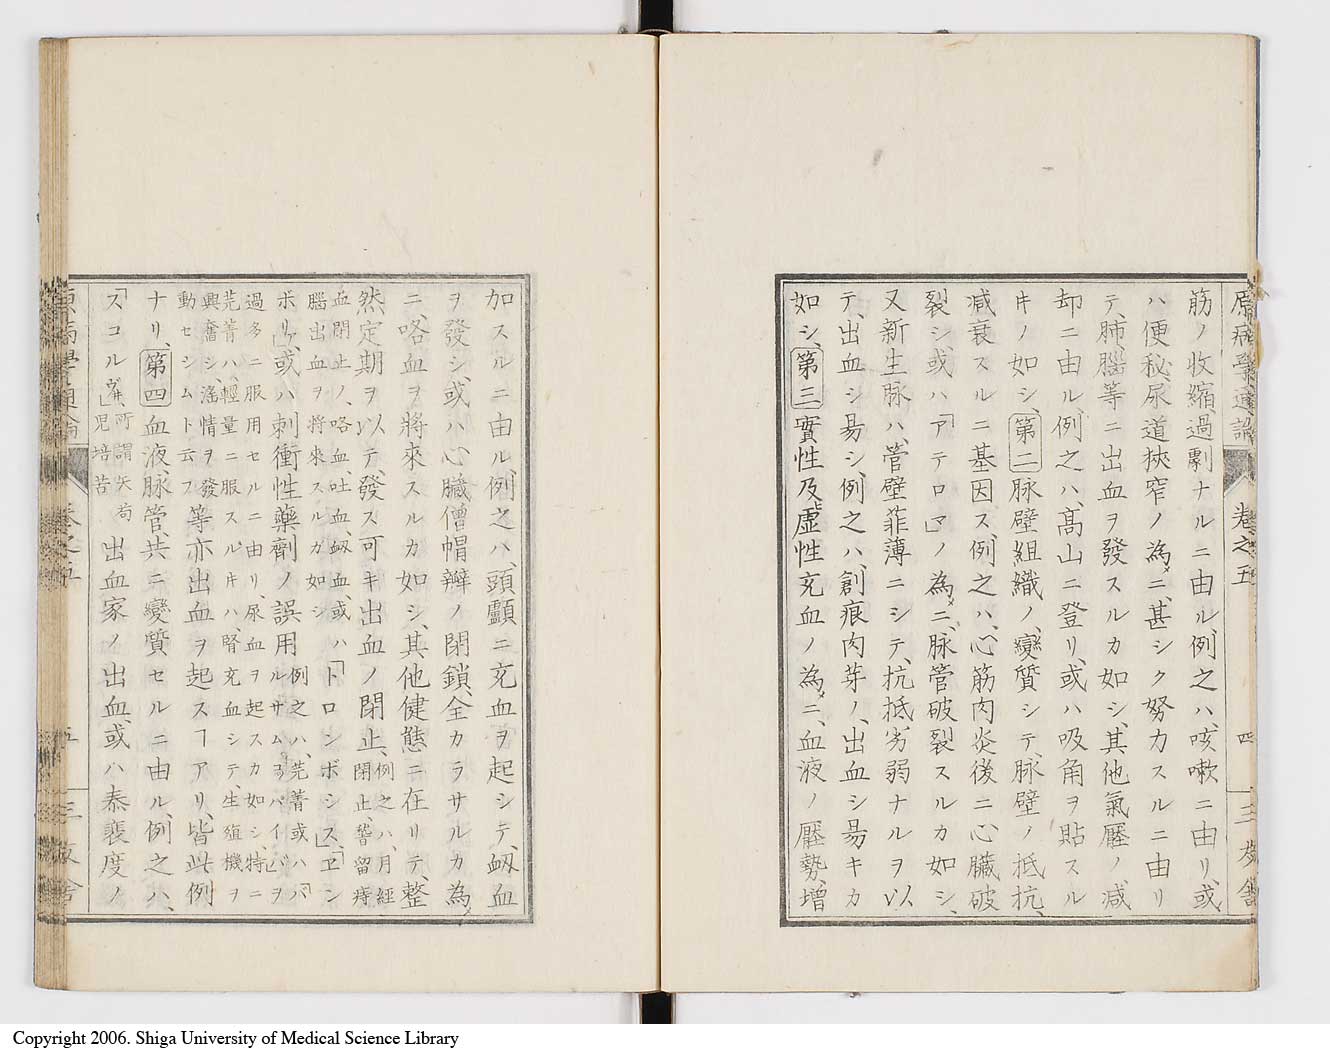 原病學通論
卷之五
四
三友舍
筋ノ收縮、過劇ナルニ由ル、例之ハ、咳嗽ニ由リ、或
ハ便秘、尿道狹窄ノ為メニ、甚シク努力スルニ由リ
テ、肺、腦等ニ出血ヲ發スルカ如シ、其他氣壓ノ、減
却ニ由ル、例之ハ、高山ニ登リ、或ハ吸角ヲ貼スル
キノ如シ、第二脉壁組織ノ、變質シテ、脉壁ノ抵抗、
減衰スルニ基因ス、例之ハ、心筋肉炎後ニ、心臓破
裂シ、或ハ「アテロマ」ノ為メニ、脉管破裂スルカ如シ、
又新生脉ハ、管壁菲薄ニシテ、抗抵、劣弱ナルヲ以
テ、出血シ易シ、例之ハ、創痕肉芽ノ、出血シ易キカ
如シ、第三實性及ヒ虚性充血ノ為メニ、血液ノ壓勢増
加スルニ由ル、例之ハ、頭顱ニ充血ヲ起シテ、衂血
ヲ發シ、或ハ、心臓僧帽瓣ノ閉鎖、全カラサルカ為メ
ニ、咯血ヲ將來スルカ如シ、其他健態ニ在リテ、整
然定期ヲ以テ、發ス可キ出血ノ閉止、例之ハ、月經閉止、痔
血閉止ノ、咯血、吐血、衂血、或ハ「トロンボシス」、「エン
腦出血ヲ將來スルガ如シ
ボリー」、或ハ刺衝性藥劑ノ誤用例之ハ、芫菁或ハ「バルサムコパイバ」ヲ
過多ニ服用セルニ由リ、尿血ヲ起スカ如シ、特ニ
芫菁ハ、輕量ニ服スルキハ腎充血シテ、生殖機ヲ
興奮シ、滛情ヲ發
動セシムト云フ等亦出血ヲ起スヿアリ、皆此例
ナリ、第四血液、脉管、共ニ變質セルニ由ル、例之ハ、
「スコルヴ井」所謂矢苟児培苦出血家ノ出血、或ハ泰褒度ノ
原病學通論
卷之五
五
三友舍
Copyright 2006. Shiga University of Medical Science Library